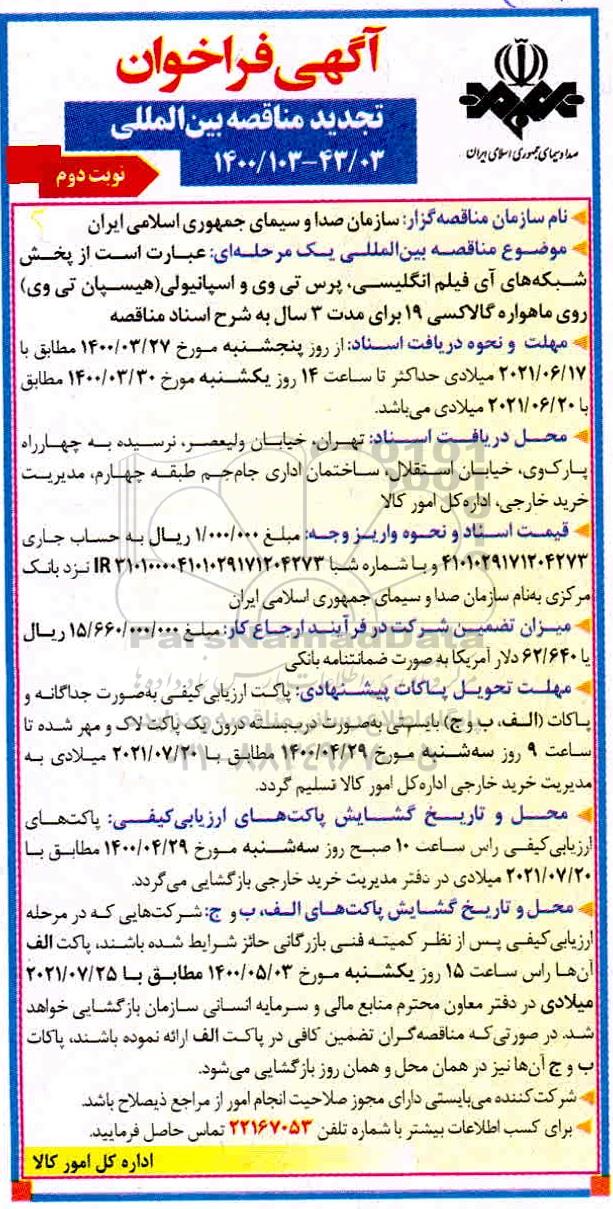 آگهی فراخوان
تجدید مناقصه بین‌المللی
۱۴۰۰/۱۰۳-۴۳/۰۳
نوبت دوم
صدا و سیمای جمهوری اسلامی ایران
نام سازمان مناقصه‌گزار: سازمان صدا و سیمای جمهوری اسلامی ایران
موضوع مناقصه بین‌المللی یک مرحله‌ای: عبارت است از پخش
شبکه‌های آی فیلم انگلیسی، پرس تی وی و اسپانیولی(هیسپان تی وی)
روی ماهواره گالاکسی ۱۹ برای مدت ۳ سال به شرح اسناد مناقصه
مهلت و نحوه دریافت اسناد: از روز پنجشنبه مورخ ۱۴۰۰/۰۳/۲۷ مطابق با
۲۰۲۱/۰۶/۱۷ میلادی حداکثر تا ساعت ۱۴ روز یکشنبه مورخ ۱۴۰۰/۰۳/۳۰ مطابق
با ۲۰۲۱/۰۶/۲۰ میلادی می‌باشد.
محل دریافت اسناد: تهران، خیابان ولیعصر، نرسیده به چهارراه
پارک‌وی، خیابان استقلال، ساختمان اداری جام‌جم طبقه چهارم، مدیریت
خرید خارجی، اداره‌کل امور کالا
قیمت اسناد و نحوه واریز وجه: مبلغ ۱/۰۰۰/۰۰۰ ریال به حساب جاری
۴۱۰۱۰۲۹۱۷۱۲۰۴۲۷۳ و با شماره شبا IR ۳۱۰۱۰۰۰۰۴۱۰۱۰۲۹۱۷۱۲۰۴۲۷۳ نزد بانک
مرکزی به‌نام سازمان صدا و سیمای جمهوری اسلامی ایران
میزان تضمین شرکت در فرآیند ارجاع کار: مبلغ ۱۵/۶۶۰/۰۰۰/۰۰۰ ریال
یا ۶۲/۶۴۰ دلار آمریکا به صورت ضمانتنامه بانکی
مهلت تحویل پاکات پیشنهادی: پاکت ارزیابی‌کیفی به‌صورت جداگانه و
پاکات (الف، ب و ج) بایستی به‌صورت دربسته درون یک پاکت لاک و مهر شده تا
ساعت ۹ روز سه‌شنبه مورخ ۱۴۰۰/۰۴/۲۹ مطابق با ۲۰۲۱/۰۷/۲۰ میلادی به
مدیریت خرید خارجی اداره‌کل امور کالا تسلیم گردد.
محل و تاریخ گشایش پاکت‌های ارزیابی‌کیفی: پاکت‌های
ارزیابی‌کیفی راس ساعت ۱۰ صبح روز سه‌شنبه مورخ ۱۴۰۰/۰۴/۲۹ مطابق با
۲۰۲۱/۰۷/۲۰ میلادی در دفتر مدیریت خرید خارجی بازگشایی می‌گردد.
محل و تاریخ گشایش پاکت‌های الف، ب و ج: شرکت‌هایی که در مرحله
ارزیابی‌کیفی پس از نظر کمیته فنی بازرگانی حائز شرایط شده باشند، پاکت الف
آن‌ها راس ساعت ۱۵ روز یکشنبه مورخ ۱۴۰۰/۰۵/۰۳ مطابق با ۲۰۲۱/۰۷/۲۵
میلادی در دفتر معاون محترم منابع مالی و سرمایه انسانی سازمان بازگشایی خواهد
شد. در صورتی‌که مناقصه‌گران تضمین کافی در پاکت الف ارائه نموده باشند، پاکات
ب و ج آن‌ها نیز در همان محل و همان روز بازگشایی می‌شود.
شرکت‌کننده می‌بایستی دارای مجوز صلاحیت انجام امور از مراجع ذیصلاح باشد.
برای کسب اطلاعات بیشتر با شماره تلفن ۲۲۱۶۷۰۵۳ تماس حاصل فرمایید.
اداره کل امور کالا
ParsNamadData